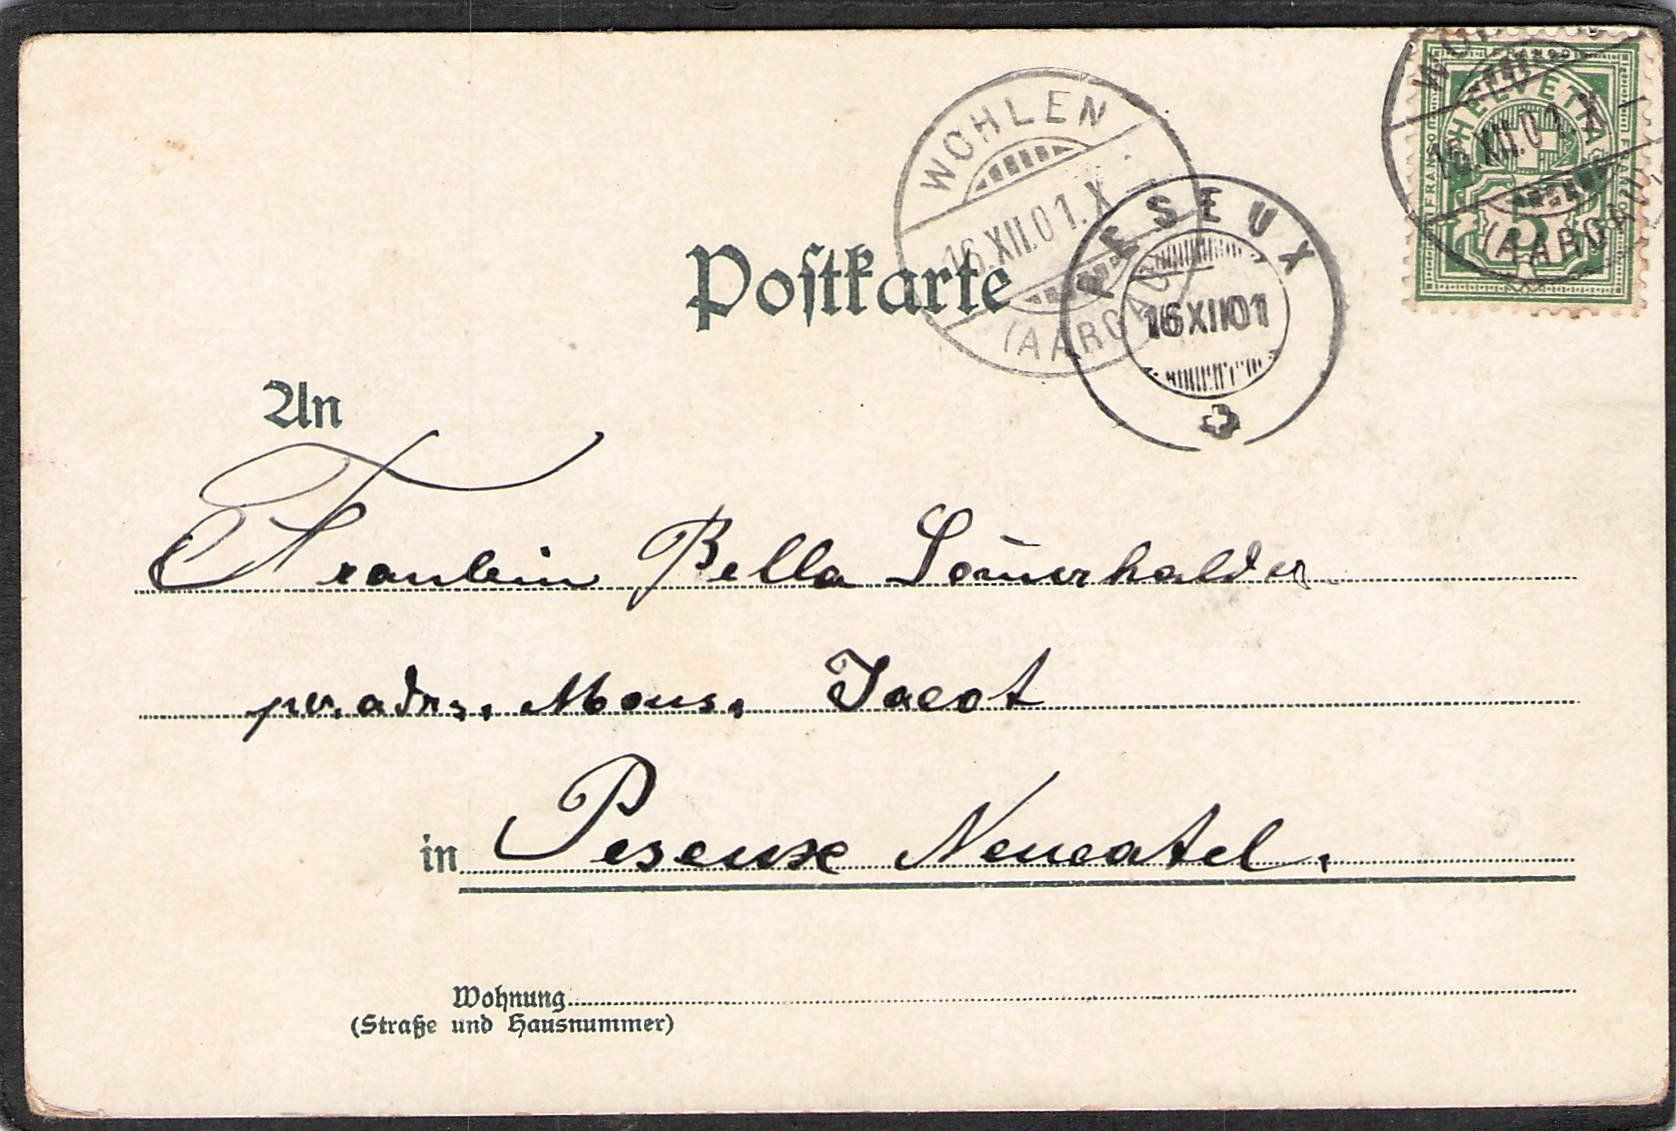 WOHLEN
16.XII.01.X
(AARGAU)
PESEUX
16 XII 01
HELVETIA
FRANCO
5
16.XII.01.X
(AARGAU)
Postkarte
An
Fraulein Bella Som̄erhalder
per. adr., Mons. Jacot
in Peseux Neucatel.
Wohnung
(Straße und Hausnummer)